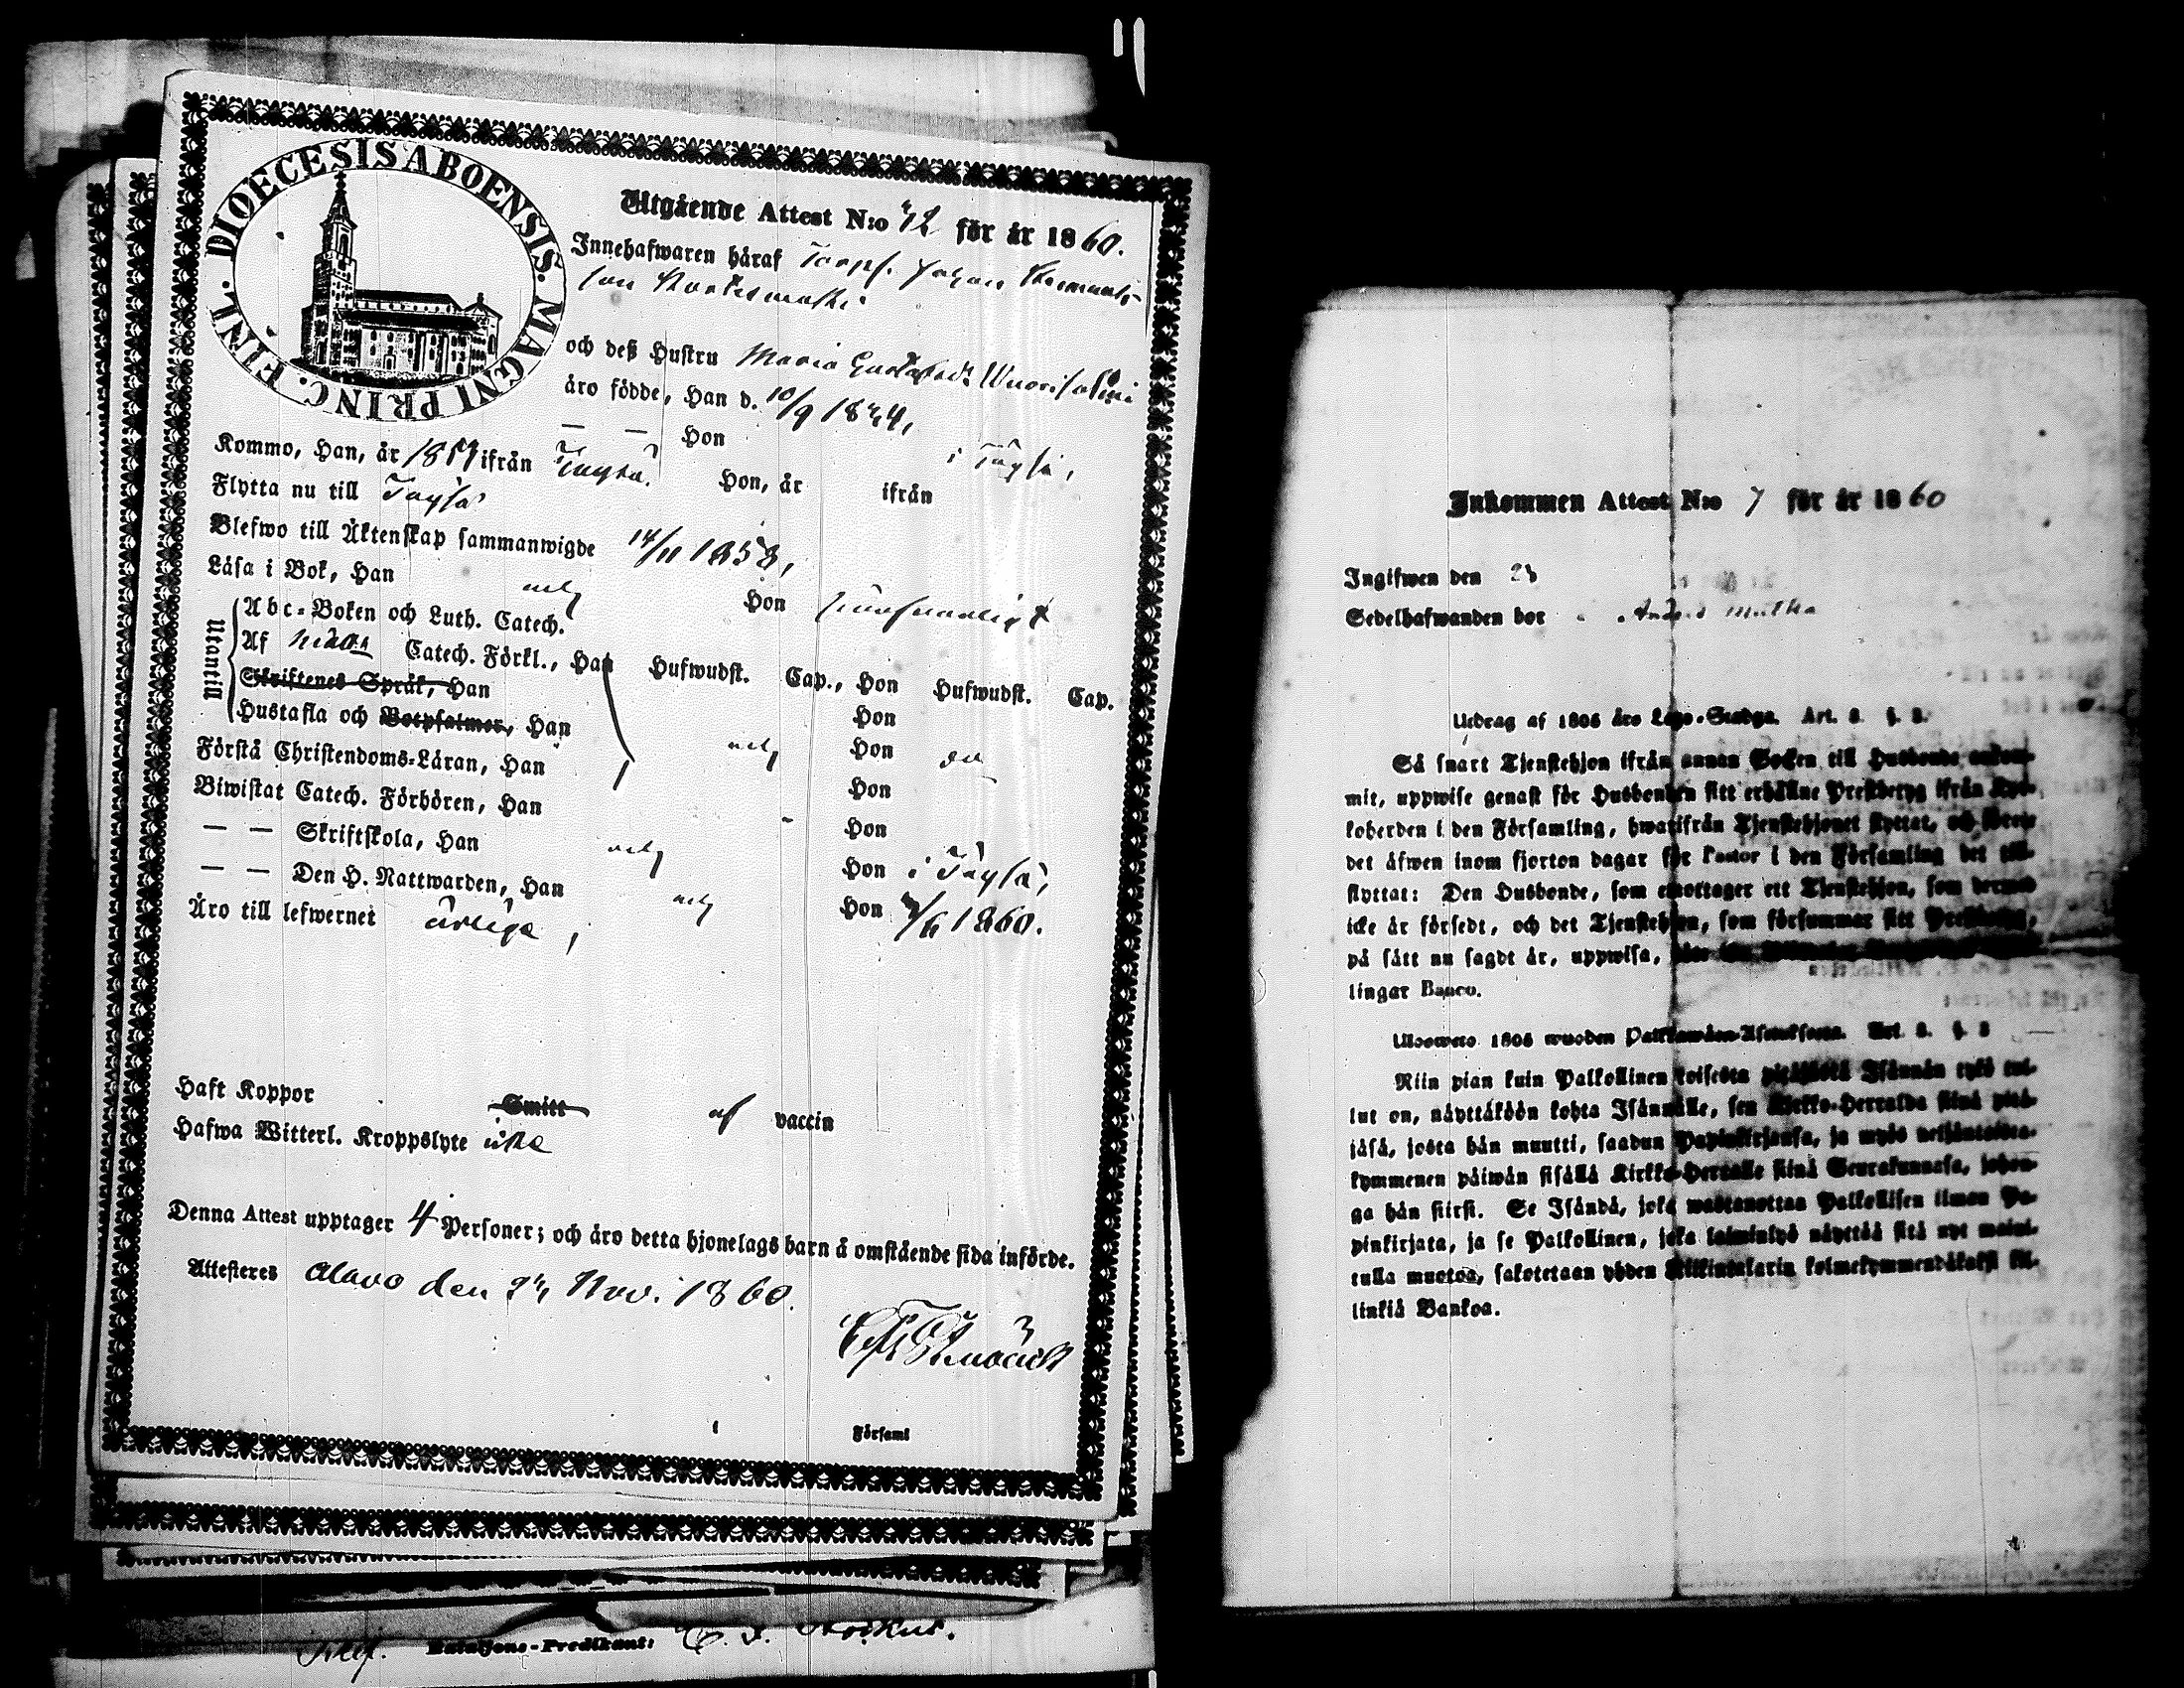 DIOECESIS ABOENSIS. MAGNI PRINC. FINL.
Utgående Attest N:o 72 för år 1860.
Innehafwaren häraf Torp. Johan
son
och deß Hustru Maria Wuorisalmi
äro födde, Han d. 10/9 1824,
— — Hon i Töysä,
Kommo, Han, år ifrån Töysä. Hon, år ifrån
Flytta nu till Töysä
Blefwo till Äktenskap sammanwigde 14/11 1858,
Läsa i Bok, Han nöj Hon försvarligt
Utantill
Abc-Boken och Luth. Catech.
Af Catech. Förkl., Han Hufwudst. Cap., Hon Hufwudst. Cap.
Skriftenes Språk, Han Hon
Hustafla och Botpsalmer, Han nöj Hon do
Förstå Christendoms-Läran, Han Hon
Biwistat Catech. Förhören, Han Hon
— — Skriftskola, Han nöj Hon i Töysä,
— — Den H. Nattwarden, Han nöj Hon /6 1860.
Äro till lefwernet ärliga,
Haft Koppor Smitt af vaccin
Hafwa Witterl. Kroppslyte icke
Denna Attest upptager 4 Personer; och äro detta hjonelags barn å omstående sida införde.
Attesteres Alavo den Nov. 1860.
Församl
Bataljons-Predikant:
Inkommen Attest N:o 7 för år 1860
Ingifwen den 23
Sedelhafwanden bor
Utdrag af 1805 års Lego-Stadga. Art. 3. §. 3.
Så snart Tjenstehjon ifrån annan Socken till Husbonde ankom-
mit, uppwise genast för Husbonden sitt erhållne Prestbetyg ifrån Kyr-
koherden i den Församling, hwarifrån Tjenstehjonet flyttat, och förete
det äfwen inom fjorton dagar för Pastor i den Församling det till-
flyttat: Den Husbonde, som emottager ett Tjenstehjon, som dermed
icke är försedt, och det Tjenstehjon, som försummar sitt Prestbetyg,
på sätt nu sagdt är, uppwisa,
lingar Banco.
Ulosweto 1805 wuoden Palkkawäen-Asetuksesta. Art. 3. §. 3
Niin pian kuin Palkollinen toisesta pitäjästä Isännän tykö tul-
lut on, näyttäköön kohta Isännälle, sen Kirkko-Herralda siinä pitä-
jäsä, josta hän muutti, saadun Papinkirjansa, ja myös neljäntoista-
kymmenen päiwän sisällä Kirkko-Herralle siinä Seurakunnasa, johon-
ga hän siirsi. Se Isändä, joka wastanottaa Palkollisen ilman Pa-
pinkirjata, ja se Palkollinen, joka laiminlyö näyttää sitä nyt maini-
tulla muotoa, sakotetaan yhden Riikintalarin kolmekymmendäkaksi sil-
linkiä Bankoa.